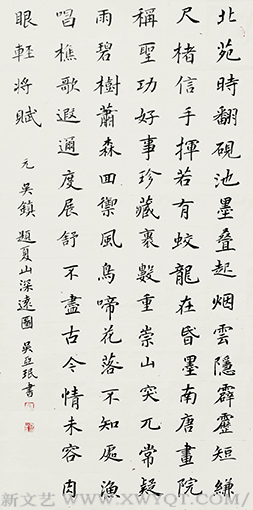 北苑時翻硯池墨叠起烟雲隱霹靂短縑
尺楮信手揮若有蛟龍在昏墨南唐畫院
稱聖功好事珍藏裹數重崇山突兀常疑
雨碧樹蕭森回禦風鳥啼花落不知處漁
唱樵歌遐邇度展舒不盡古今情未容肉
眼輕将賦
元 吴鎮 題夏山深遠圖 吴亞珉書
新文艺 www.XWYQT.COM